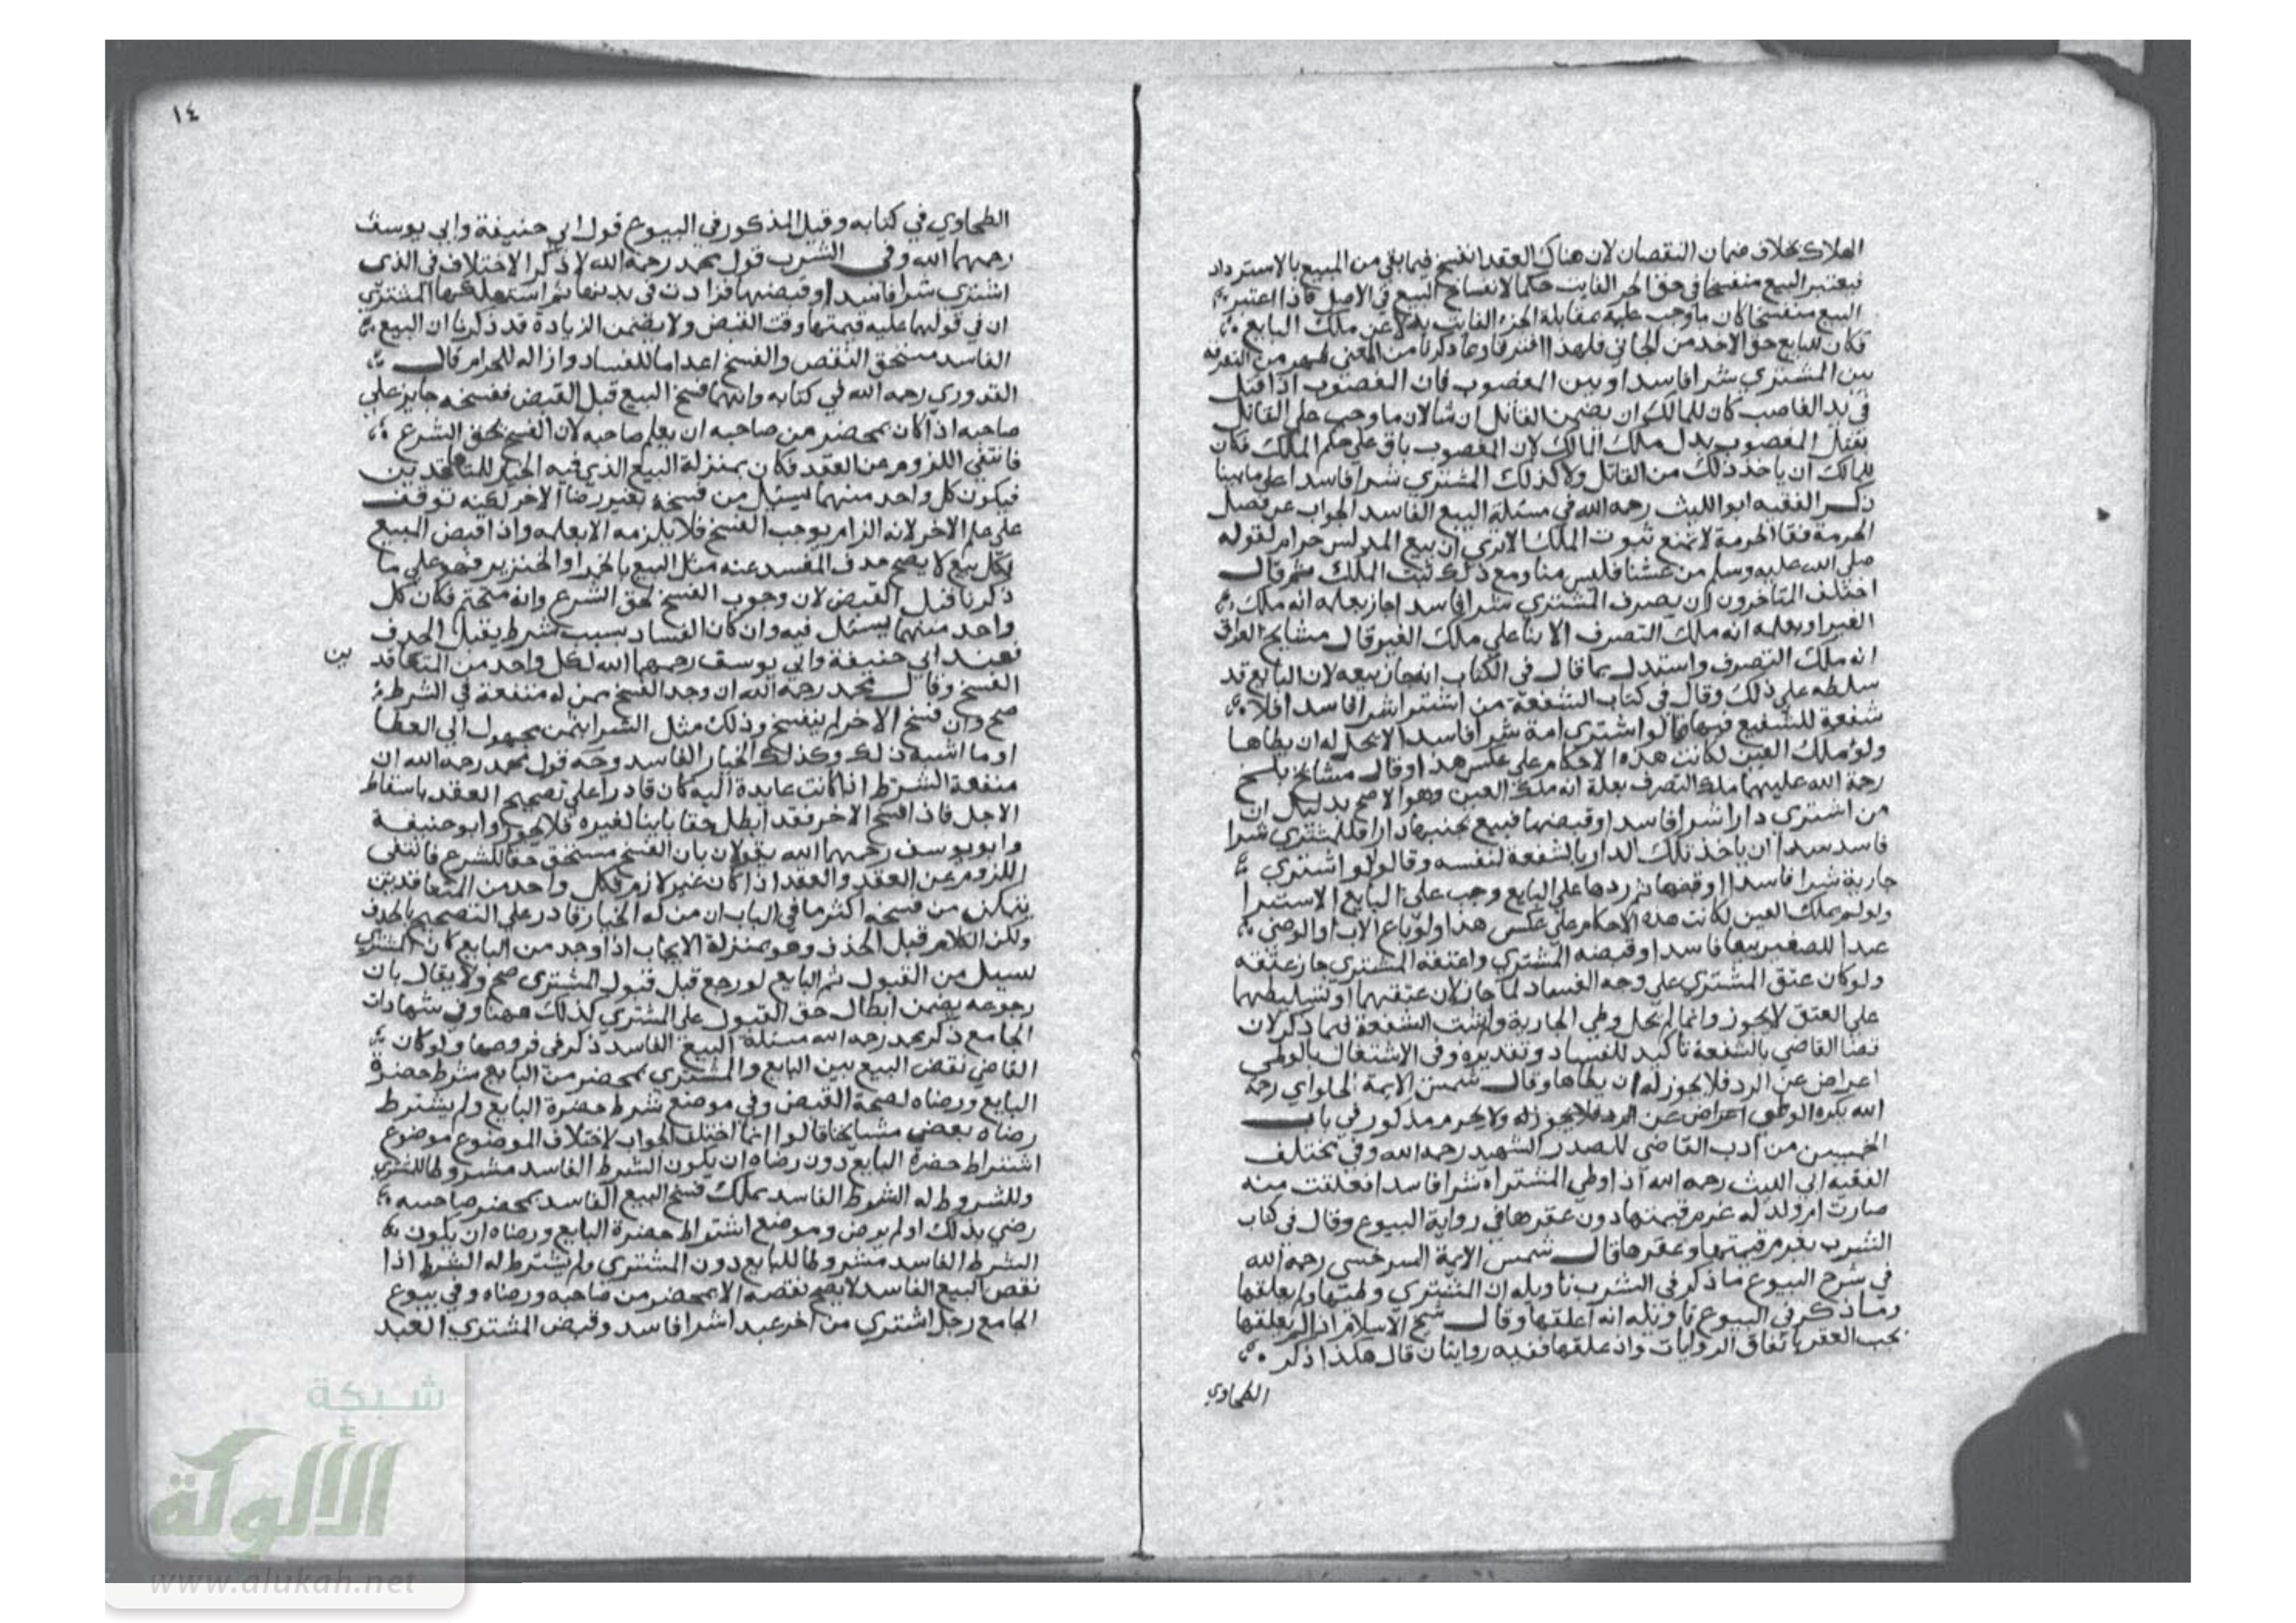 الهلاك بخلاف ضمان النقصان لان هناك العقد انفسخ فيما بقي من المبيع بالاسترداد
فيعتبر البيع منفسخا في حق الجزء الفايت حكما لانفساخ البيع في الاصل فاذا اعتبر
البيع منفسخا كان ما وجب عليه بمقابلة الجزء الفايت بدلا عن ملك البايع
فكان للبايع حق الاخذ من الجاني فلهذا افترقا وما ذكرنا من المعنى ظهر من التفرقة
بين المشتري شرا فاسدا وبين المغصوب فان المغصوب اذا قتل
في يد الغاصب كان للمالك ان يضمن القاتل ان شا لان ما وجب على القاتل
بقتل المغصوب بدل ملك المالك لان المغصوب باق على حكم الملك فكان
للمالك ان ياخذ ذلك من القاتل ولا كذلك المشتري شرا فاسدا على ما بينا
ذكر الفقيه ابو الليث رحمه الله في مسئلة البيع الفاسد الجواب عن فصل
الحرمة فقا الحرمة لا تمنع ثبوت الملك الا ترى ان بيع المدلس حرام لقوله
صلى الله عليه وسلم من غشنا فليس منا ومع ذلك ثبت الملك ثم قال
اختلف المتاخرون ان تصرف المشتري شرا فاسدا جاز بعلة انه ملك
الغير او بعلة انه ملك التصرف الا بنا على ملك الغير قال مشايخ العراق
انه ملك التصرف واستدل بما قال في الكتاب انه جاز بيعه لان البايع قد
سلطه على ذلك وقال في كتاب الشفعة من اشترا شرا فاسدا فلا
شفعة للشفيع فيها قالو اشترى امة شرا فاسدا لا يحل له ان يطاها
ولو ملك العين لكانت هذه الاحكام على عكس هذا وقال مشايخ بلخ
رحمة الله عليهما ملك التصرف بعلة انه ملك العين وهو الاصح بدليل ان
من اشترى دارا شرا فاسدا وقبضها فبيع بجنبها دارا فللمشتري شرا
فاسد سدا ان ياخذ تلك الدار بالشفعة لنفسه وقالوا لو اشترى
جارية شرا فاسدا وقبضها ثم ردها على البايع وجب على البايع الاستبرا
ولو لم يملك العين لكانت هذه الاحكام على عكس هذا ولو باع الاب او الوصي
عبدا للصغير بيعا فاسدا وقبضه المشتري واعتقه المشتري جاز عتقه
ولو كان عتق المشتري على وجه الفساد لما جاز لان عتقهما او تسليطهما
على العتق لا يجوز وانما لم يحل وطي الجارية ولم تثبت الشفعة فيما ذكر لان
قضا القاضي بالشفعة تاكيد للفساد وتقديره وفي الاشتغال بالوطي
اعراض عن الرد فلا يجوز له ان يطاها وقال شمس الايمة الحلواي رحمة
الله يكره الوطي اعراض عن الرد فلا يجوز له ولا يحرم مذكور في باب
الخمسين من ادب القاضي للصدر الشهيد رحمه الله وفي مختلف
الفقيه ابي الليث رحمه الله اذا وطي المشتراه شرا فاسدا فعلقت منه
صارت ام ولد له غرم قيمتها دون عقرها في رواية البيوع وقال في كتاب
الشرب يغرم قيمتها وعقرها قال شمس الايمة السرخسي رحمه الله
في شرح البيوع ما ذكر في الشرب تاويله ان المشتري وطيها ولم يعلقها
وما ذكر في البيوع تاويله انه اعلقها وقال شيخ الاسلام اذا لم يعلقها
يجب العقر باتفاق الروايات واذ علقها ففيه روايتان قال هكذا ذكر
الطحاوي
١٤
الطحاوي في كتابه وقيل المذكور في البيوع قول ابي حنيفة وابي يوسف
رحمهما الله وفي الشرب قول محمد رحمه الله لا ذكر الاختلاف في الذي
اشترى شرا فاسدا وقبضها فزادت في بدنها ثم استهلكها المشتري
ان في قولهما عليه قيمتها وقت القبض ولا يضمن الزيادة قد ذكرنا ان البيع
الفاسد مستحق النقض والفسخ اعداما للفساد وازاله للحرام قال
القدوري رحمه الله في كتابه وايهما فسخ البيع قبل القبض ففسخه جايز على
صاحبه اذا كان بمحضر من صاحبه ان يعلم صاحبه لان الفسخ بحق الشرع
فانتفي اللزوم عن العقد فكان بمنزلة البيع الذي فيه الخيار للمتعاقدين
فيكون كل واحد منهما بسبيل من فسخه بغير رضا الاخر لكنه توقف
على علم الاخر لانه الزام يوجب الفسخ فلا يلزمه الا بعلمه واذا قبض البيع
بكل بيع لا يصح حذف المفسد عنه مثل البيع بالخمر او الخنزير فهو على ما
ذكرنا قبل القبض لان وجوب الفسخ لحق الشرع وانه متحتم فكان كل
واحد منهما بسبيل فيه وان كان الفساد بسبب شرط يقبل الحذف
فعند ابي حنيفة وابي يوسف رحمهما الله لكل واحد من المتعاقدين
الفسخ وقال محمد رحمه الله ان وجد الفسخ ممن له منفعة في الشرط
صح وان فسخ الاخر لم ينفسخ وذلك مثل الشرا بثمن مجهول الي العطا
او ما اشبه ذلك وكذلك الخيار الفاسد وجه قول محمد رحمه الله ان
منفعة الشرط اذا كانت عايدة اليه كان قادرا على تصحيح العقد باسقاط
الاجل فاذا فسخ الاخر فقد ابطل حقا ثابتا لغيره فلا يجوز وابو حنيفة
وابو يوسف رحمهما الله يقولان بان الفسخ مستحق حقا للشرع فانتفى
اللزوم عن العقد والعقد اذا كان غير لازم فكل واحد من المتعاقدين
يتمكن من فسخه اكثر ما في الباب ان من له الخيار قادر على التصحيح بالحذف
ولكن الكلام قبل الحذف وهو بمنزلة الايجاب اذا وجد من البايع كان المشتري
بسبيل من القبول ثم البايع لو رجع قبل قبول المشتري صح ولا يقال بان
رجوعه يضمن ابطال حق القبول على المشتري كذلك ههنا وفي شهادات
الجامع ذكر محمد رحمه الله مسئلة البيع الفاسد ذكر في فروضها ولو كان
القاضي نقض البيع بين البايع والمشتري بمحضر من البايع شرط حضرة
البايع ورضاه لصحة القبض وفي موضع شرط حضرة البايع ولم يشترط
رضاه بعض مشايخنا قالوا انما اختلف الجواب لاختلاف الموضوع موضوع
اشتراط حضرة البايع دون رضاه ان يكون الشرط الفاسد مشروطا للمشتري
وللمشروط له الشرط الفاسد يملك فسخ البيع الفاسد بمحضر صاحبه
رضي بذلك او لم يرض وموضع اشتراط حضرة البايع ورضاه ان يكون
الشرط الفاسد مشروطا للبايع دون المشتري ولم يشترط له الشرط اذا
نقض البيع الفاسد لا يصح نقضه الا بمحضر من صاحبه ورضاه وفي بيوع
الجامع رجل اشترى من اخر عبدا شرا فاسد وقبض المشتري العبد
شبكة
الألوكة
www.alukah.net